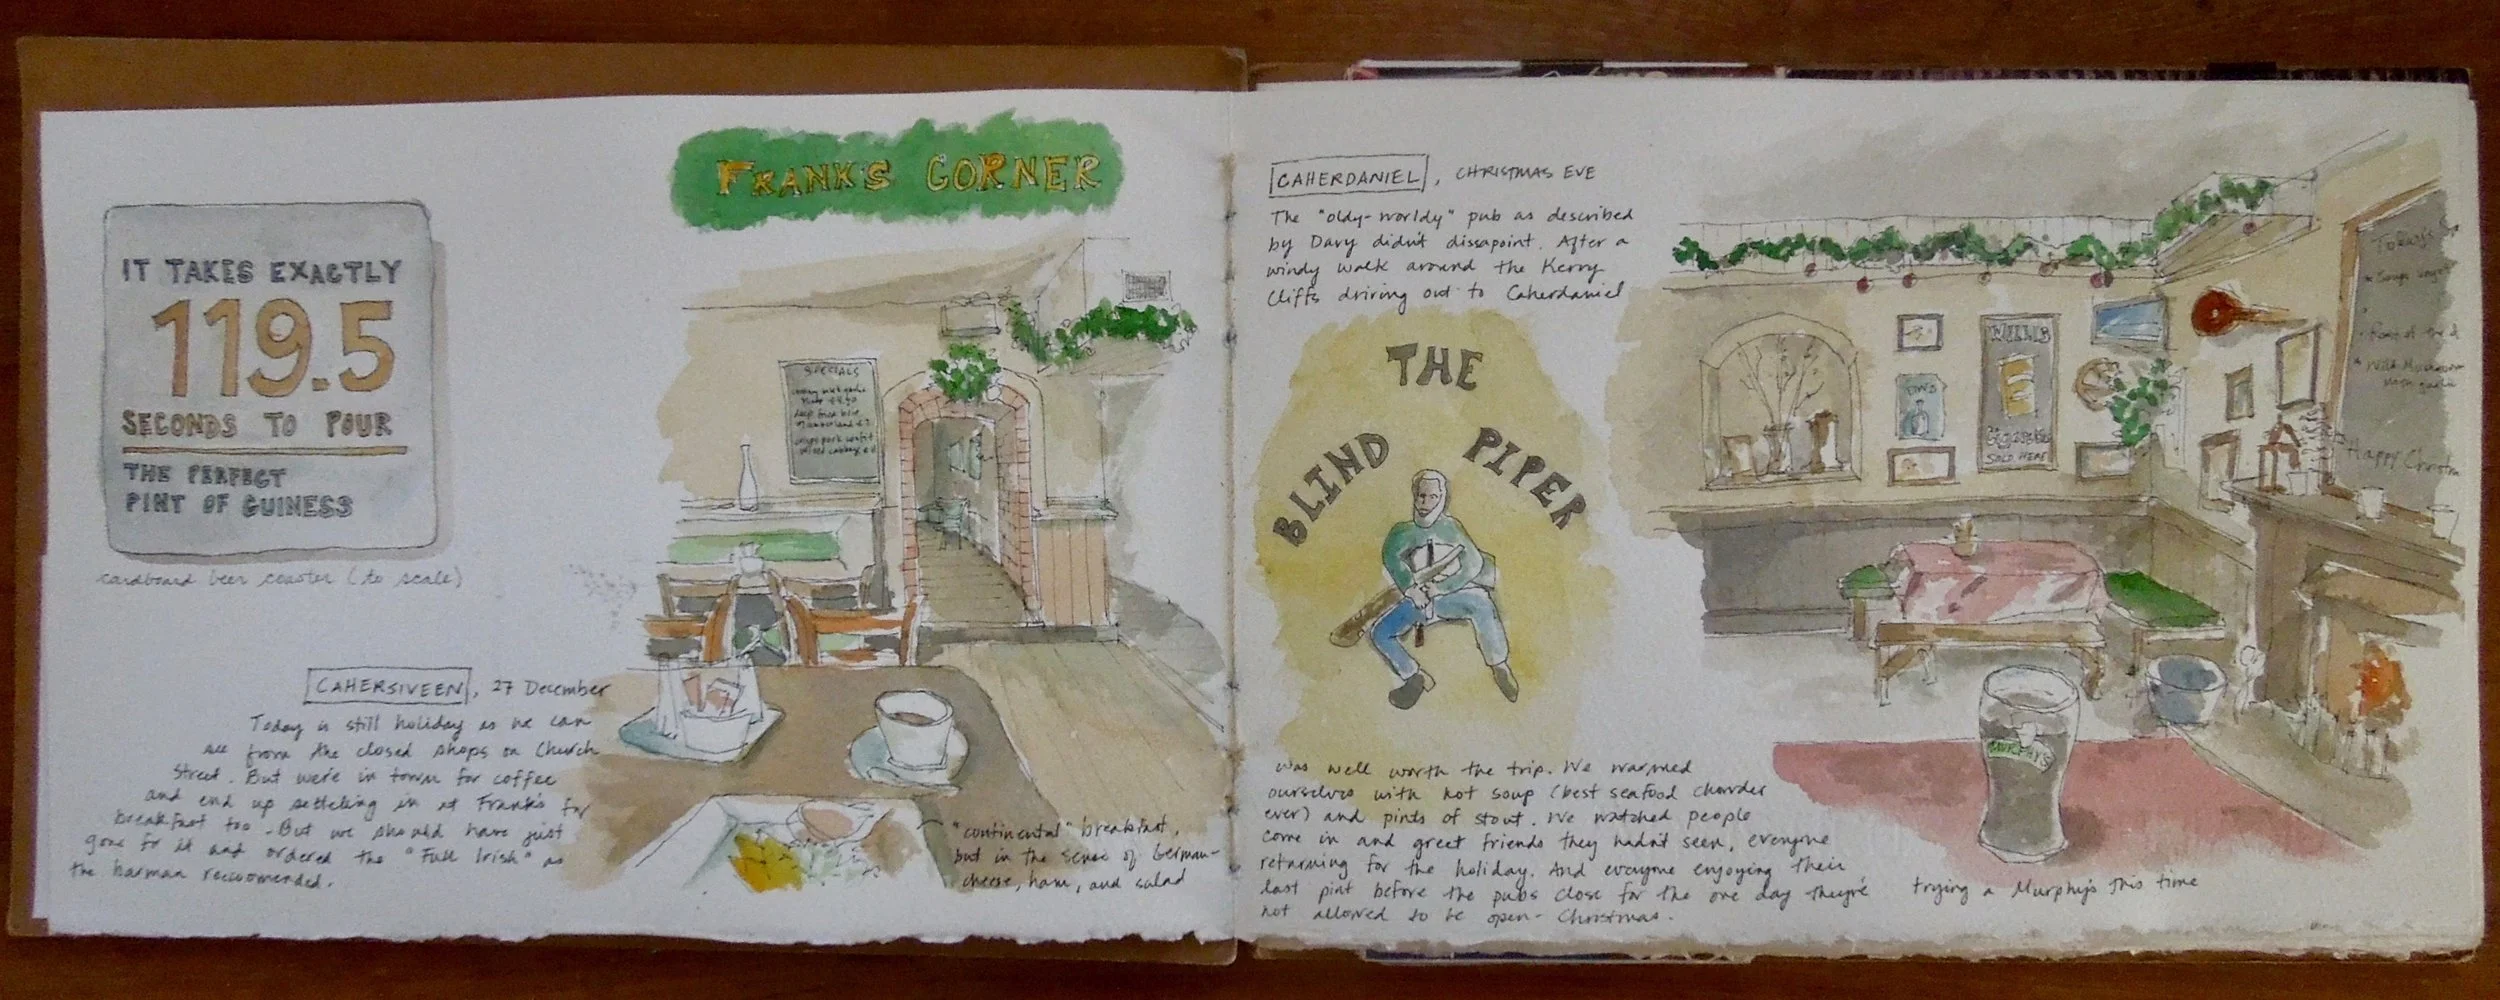 FRANK'S CORNER
IT TAKES EXACTLY
119.5
SECONDS TO POUR
THE PERFECT
PINT OF GUINESS
cardboard beer coaster (to scale)
SPECIALS
CAHERSIVEEN, 27 December
Today is still holiday as we can
see from the closed shops on Church
Street. But we're in town for coffee
and end up setteling in at Frank's for
breakfast too. But we should have just
gone for it and ordered the "Full Irish" as
the barman reccomended.
"continental" breakfast,
but in the sense of German-
cheese, ham, and salad
CAHERDANIEL, CHRISTMAS EVE
The "oldy-worldy" pub as described
by Davy didn't dissapoint. After a
windy walk around the Kerry
Cliffs driving out to Caherdaniel
THE
BLIND PIPER
was well worth the trip. We warmed
ourselves with hot soup (best seafood chowder
ever) and pints of stout. We watched people
come in and greet friends they hadn't seen, everyone
returning for the holiday. And everyone enjoying their
last pint before the pubs close for the one day they're
not allowed to be open - Christmas.
WILLS
Cigarettes
SOLD HERE
Today's
Wild Mushroom
Happy Christma
MURPHY'S
trying a Murphy's this time